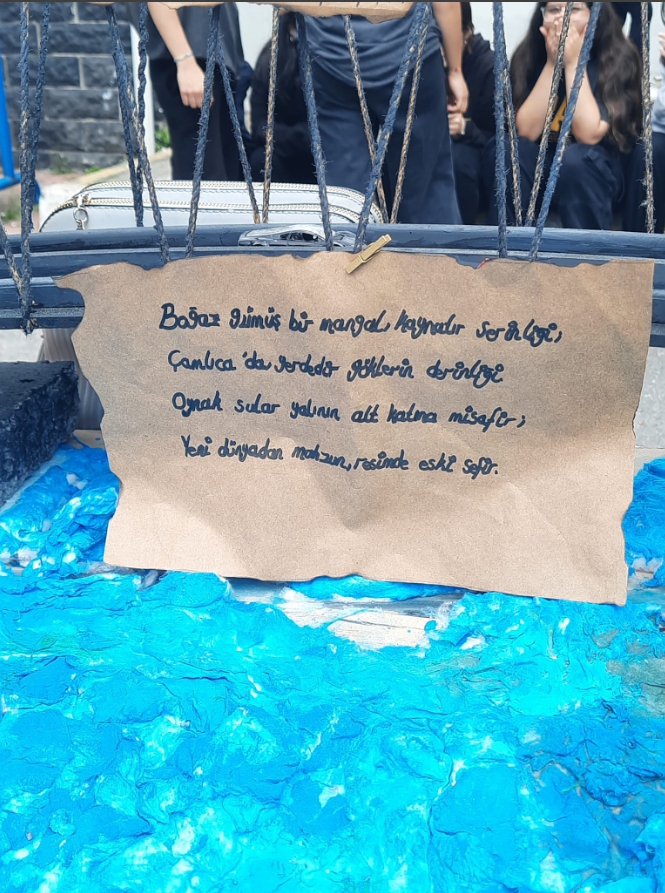 Boğaz gümüş bir mangal, kaynatır serinliği;
Çamlıca'da, yerdedir göklerin derinliği
Oynak sular yalının alt katına misafir;
Yeni dünyadan mahzun, resimde eski sefir.